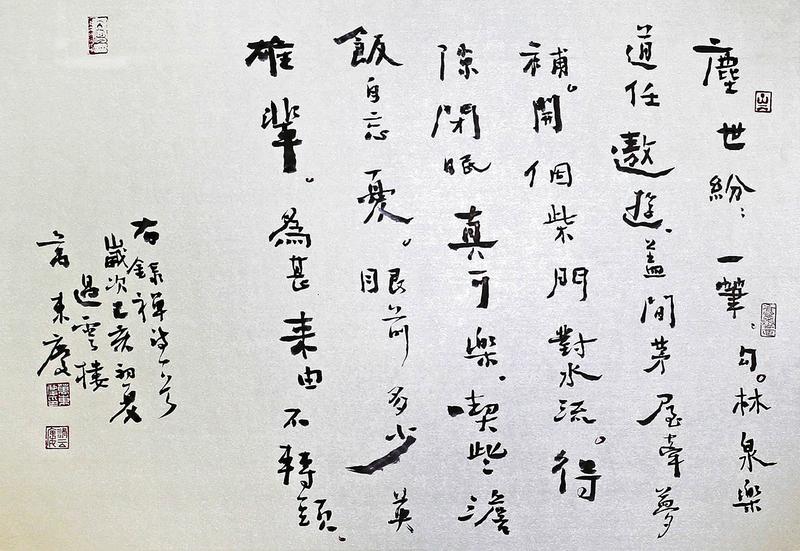 塵世紛：一筆、勾。林泉樂
道任遨遊、蓋間茅屋牽萝
補。開個柴門對水流。得
隙閑眠真可樂、喫些澹
飯自忘憂。眼前多少英
雄輩。為甚来由不轉頭、
右錄禪詩一首
歲次己亥初夏
過雲樓